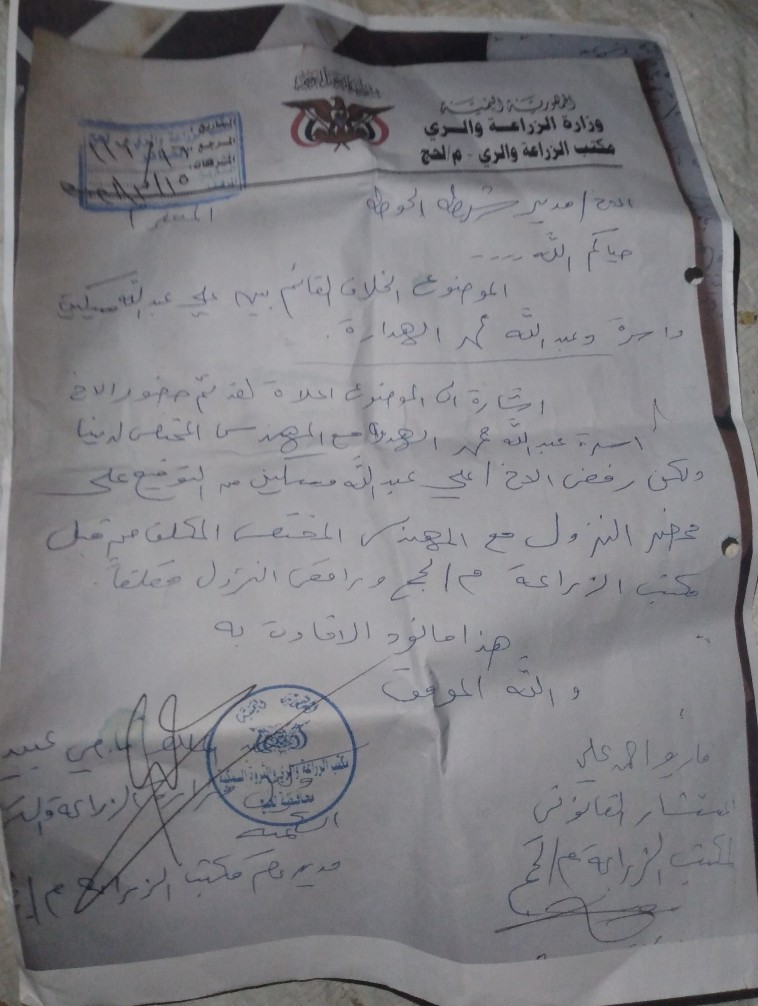 الجمهورية اليمنية
وزارة الزراعة والري
مكتب الزراعة والري - م/لحج
التاريخ:
المرجع:
المرفقات:
الاخ / مدير شرطة الحوطة
المحترم
حياكم الله ....
الموضوع الخلاف القائم بين علي عبدالله مسكين
واسرة وعبدالله عمر الهدارة.
اشارة الى الموضوع اعلاة لقد تم حضور الاخ
اسرة عبدالله عمر مع المهندس المختص لدينا
ولكن رفض الاخ / علي عبدالله مسكين من التوقيع على
محضر النزول مع المهندس المختص المكلف من قبل
مكتب الزراعة م/لحج ورافض النزول مطلقاً.
هذا مانود الافادة به
والله الموفق
احمد علي
المستشار القانوني
لمكتب الزراعة م/لحج
عبيد
الزراعة
مدير عام مكتب الزراعة م/
مكتب الزراعة والري والثروة السمكية
محافظة لحج